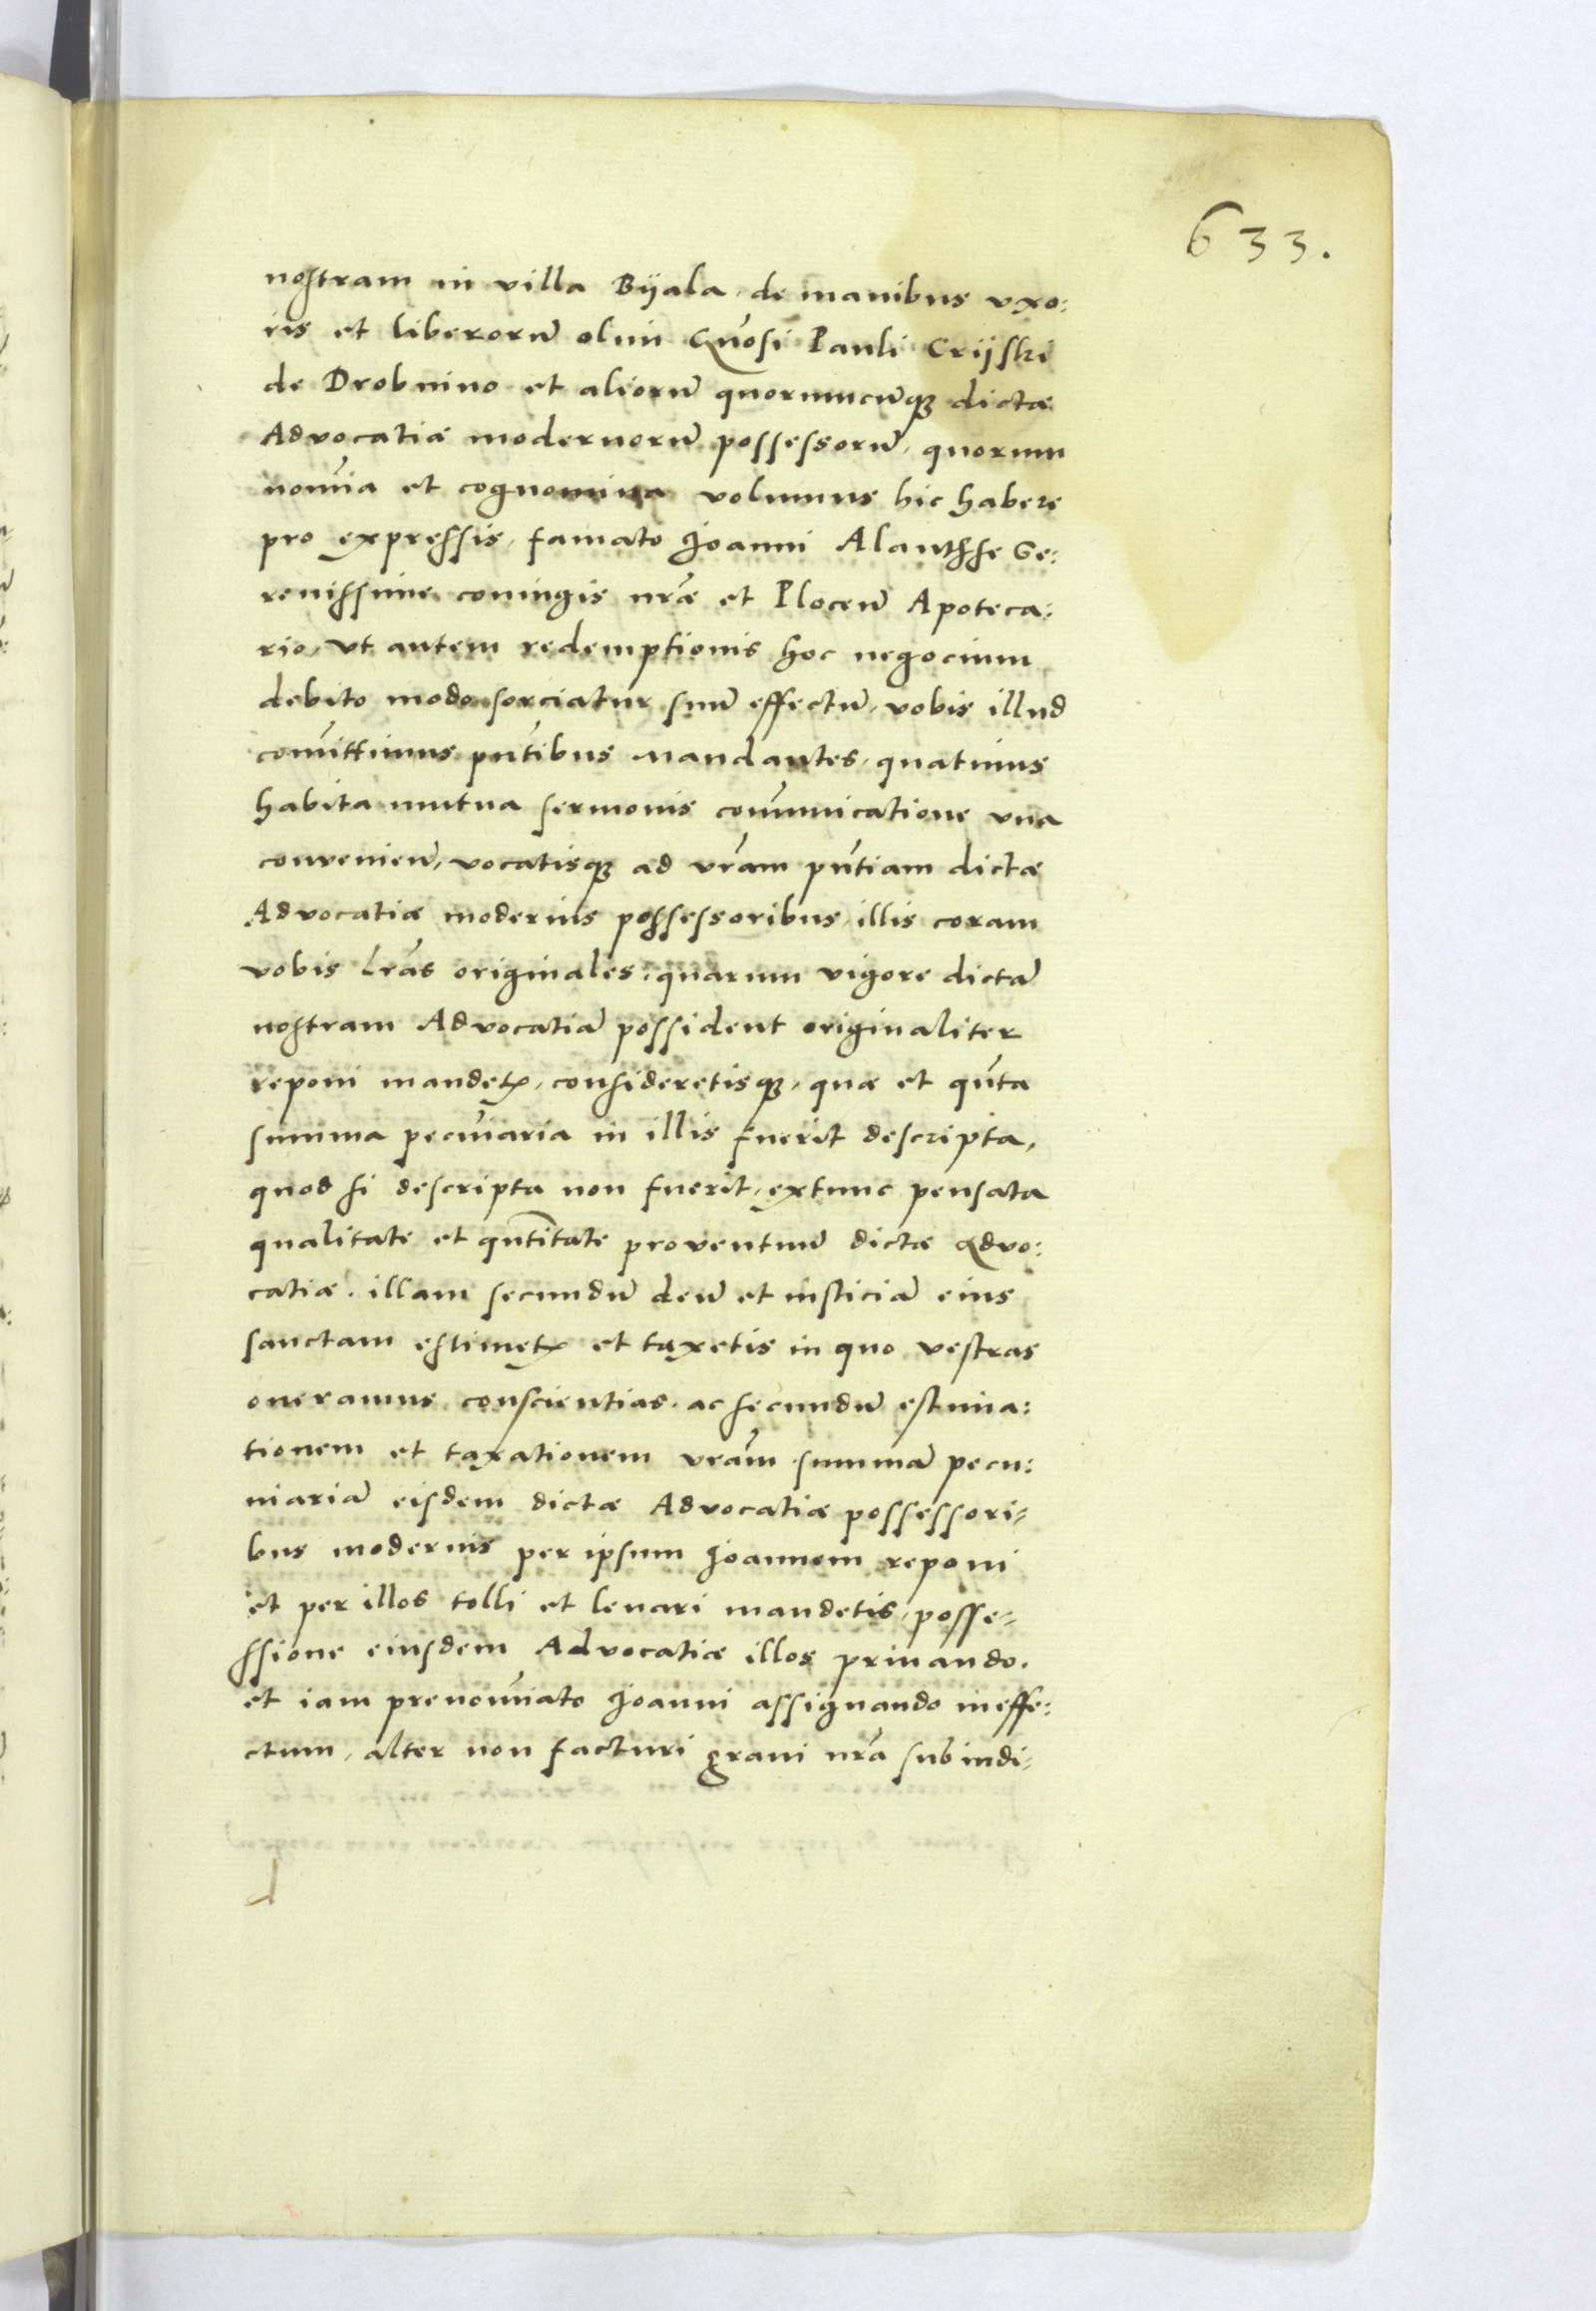 633.
nostram in villa Bÿala, de manibus vxo:
ris et liberorũ olim Gñosi Pauli Crÿski
de Drobnino et aliorũ quorumcũqꝫ dictæ
Advocatiæ modernorũ possessorũ, quorum
nom̃ia et cognomina volumus hic habere
pro expressis, famato Joanni Alantsse Se:
renissime coniugis nr̃æ et Plocen̄ Apoteca:
rio, vt autem redemptionis hoc negocium
debito modo sorciatur suũ effectũ, vobis illud
com̃ittimus pñtibus Mandantes, quatinus
habita mutua sermonis com̃unicatione vna
convenien̄, vocatisqꝫ ad vr̃am pñtiam dictæ
Advocatiæ modernis possessoribus, illis coram
vobis Lr̃as originales, quarum vigore dictã
nostram Advocatiã possident originaliter
reponi mandetꝭ, consideretisqꝫ, quæ et qũta
summa pecuñiaria in illis fuerit descripta,
quod si descripta non fuerit, extunc pensata
qualitate et qũtitate proventuũ dictæ Advo:
catiæ, illam secundũ deũ et iusticiã eius
sanctam estimetꝭ et taxetis in quo vestras
oneramus conscientias, ac secundũ estima:
tionem et taxationem vr̃am summã pecu:
niariã eisdem dictæ Advocatiæ possessori=
bus modernis per ipsum Joannem reponi
et per illos tolli et leuari mandetis, posse=
ssione eiusdem Advocatiæ illos priuando,
et iam prenom̃iato Joanni assignando in effe:
ctum, alter non facturi graui nr̃a sub indi=